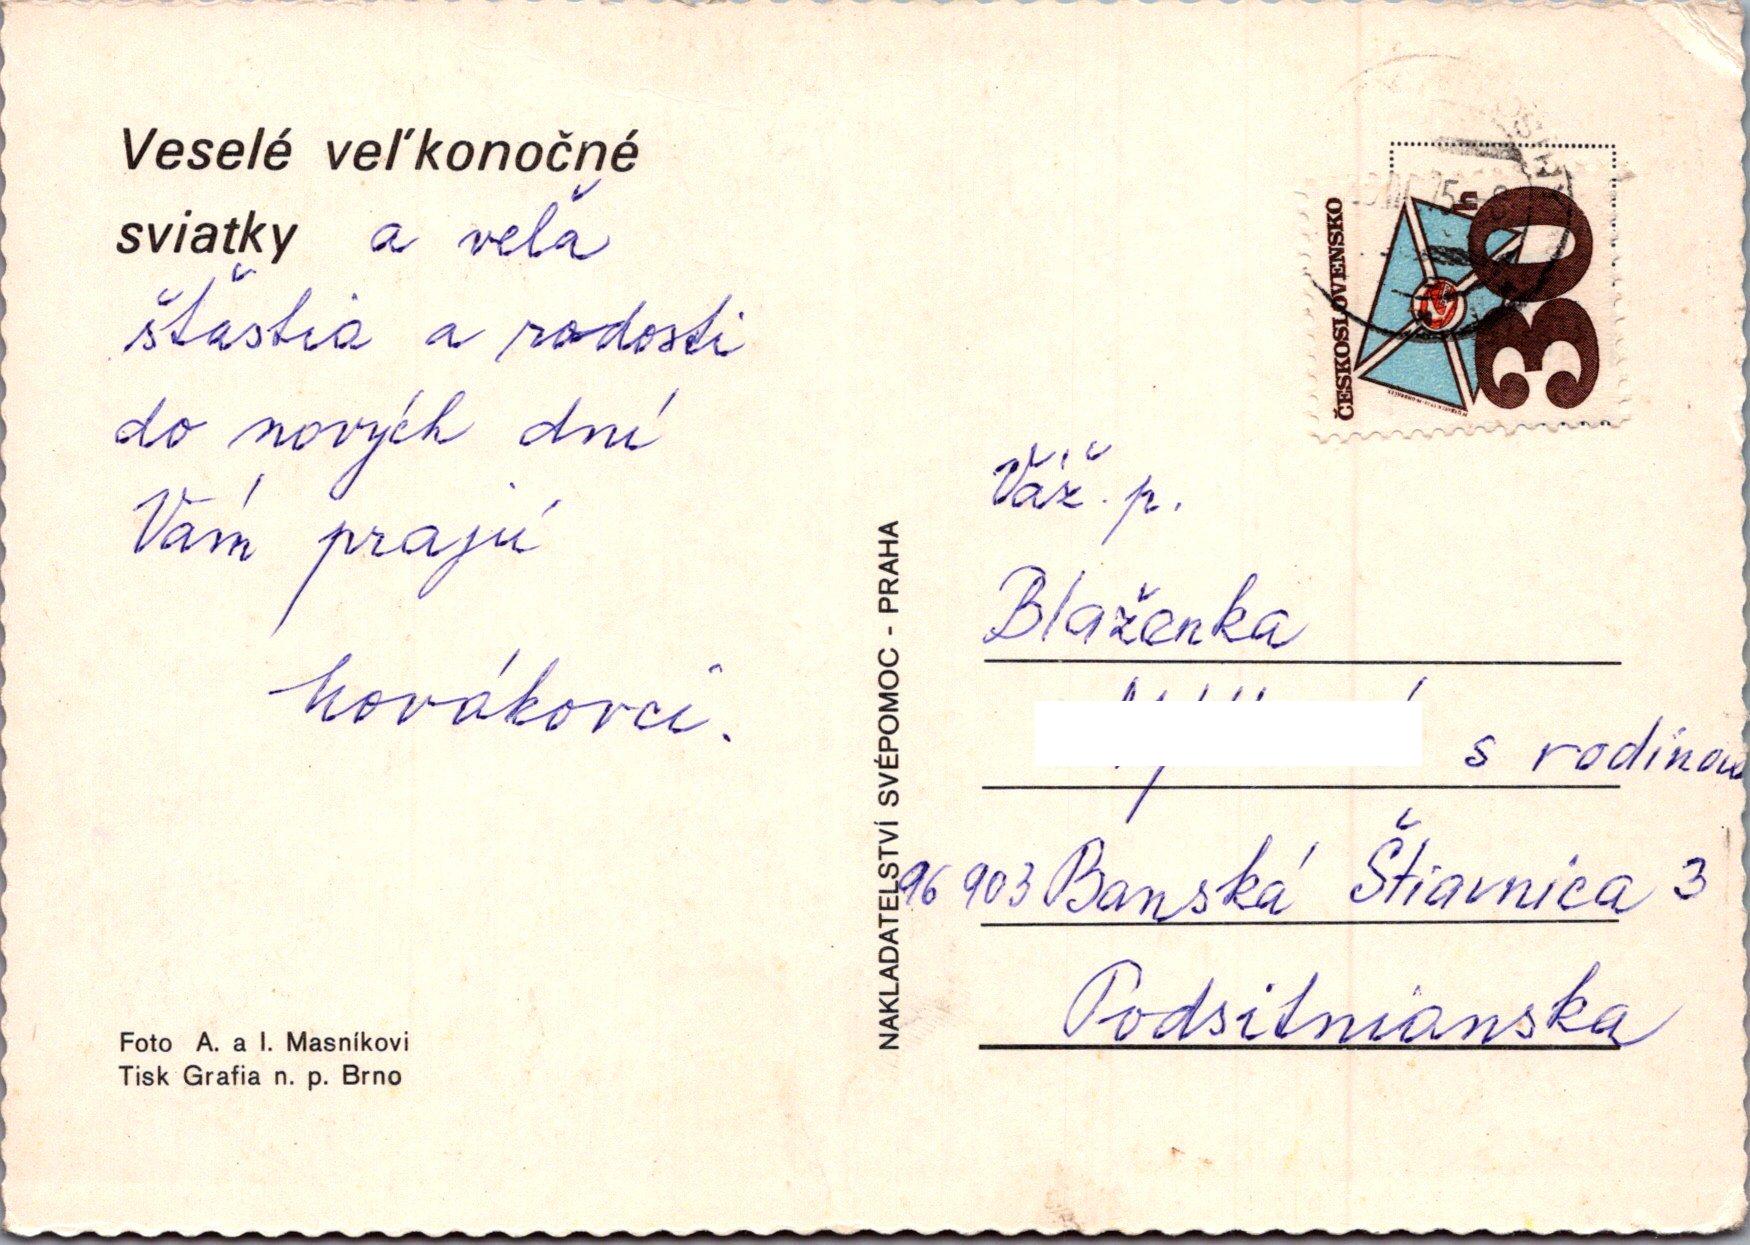 Veselé veľkonočné
sviatky a veľa
šťastia a radosti
do nových dní
Vám prajú
Novákovci.
Foto A. a I. Masníkovi
Tisk Grafia n. p. Brno
NAKLADATELSTVÍ SVÉPOMOC - PRAHA
ČESKOSLOVENSKO
30
h
Váž. p.
Blaženka
s rodinou
96 903 Banská Štiavnica 3
Podsitnianska